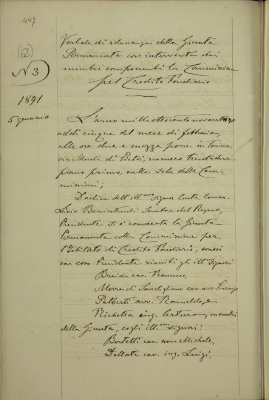 447
(2)
N 3
1891
5 gennaio
Verbale di adunanza della Giunta
Permanente con intervento dei
membri componenti la Commissione
pel Credito Fondiario
L'anno mille ottocento novantuno
addì cinque del mese di febbraio,
alle ore due e mezza pom. in Torino,
via Monte di Pietà, numero trentadue
piano primo, nella Sala delle Com-
missioni;
D'ordine dell'Ill.mo Signor Conte Comm.
Livio Benintendi Senatore del Regno,
Presidente si è convocata la Giunta
Permanente colla Commissione per
l'Istituto di Credito Fondiario, ed
con esso Presidente riuniti gli ill.mi Signori
cav. Francesco,
di cav. avv.
avv.
Richetta ing. membri
della Giunta, e cogli ill.mi Signori:
Bertetti cav. avv. Michele,
cav. ing. Luigi,